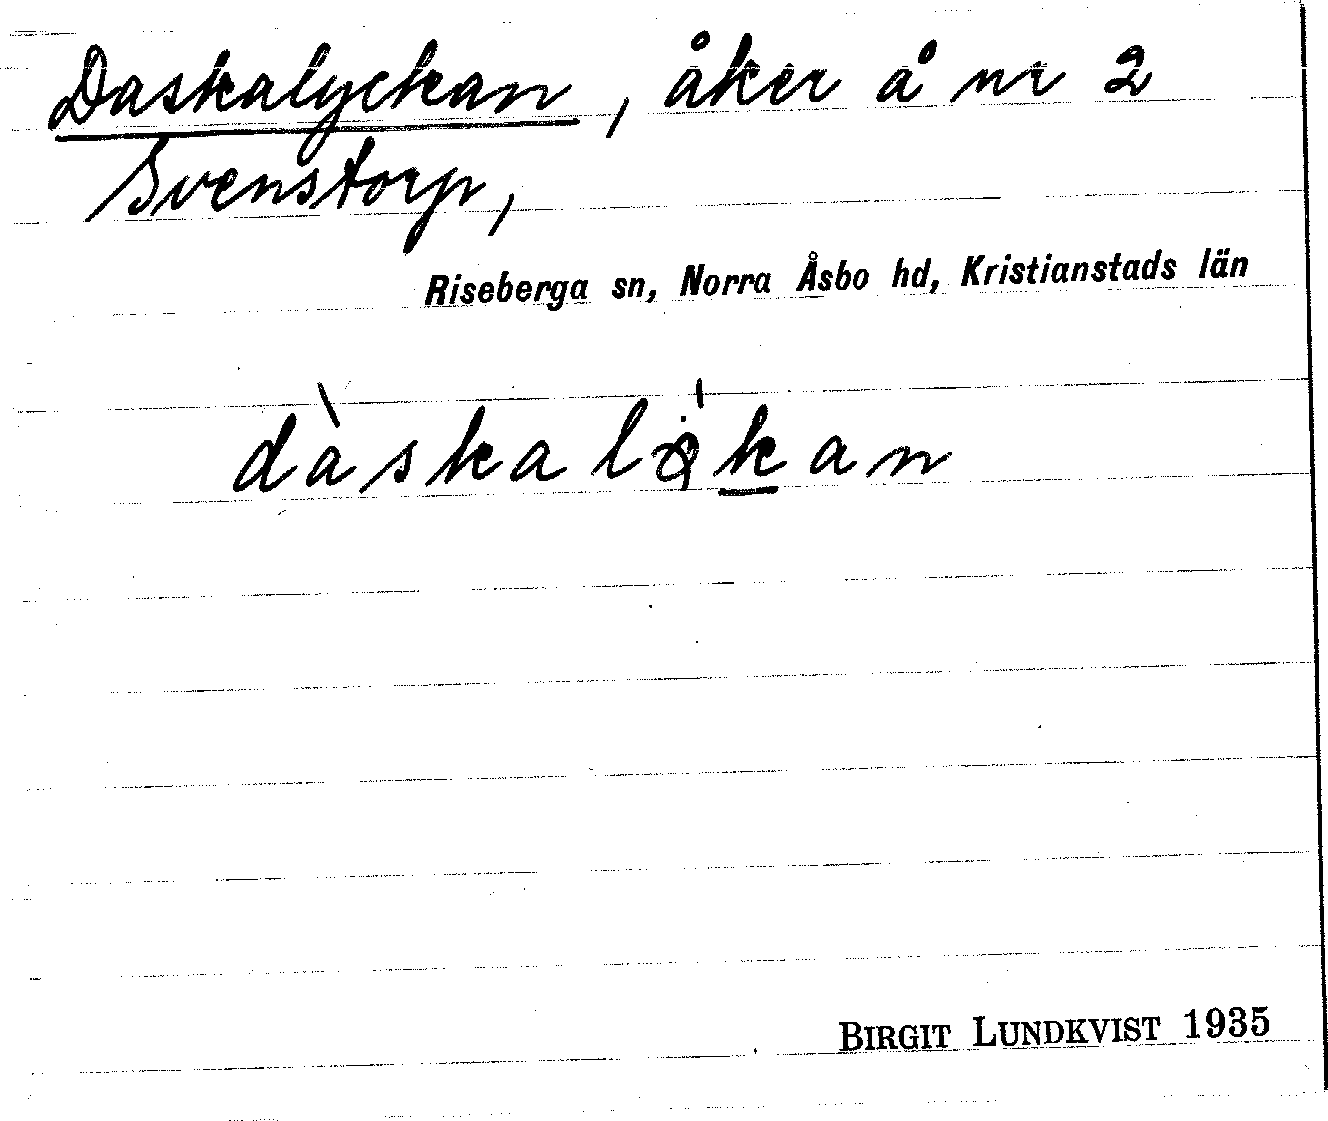 Daskalyckan, åker å nr 2
Svenstorp,
Riseberga sn, Norra Åsbo hd, Kristianstads län
dàskaløkan
BIRGIT LUNDKVIST 1935